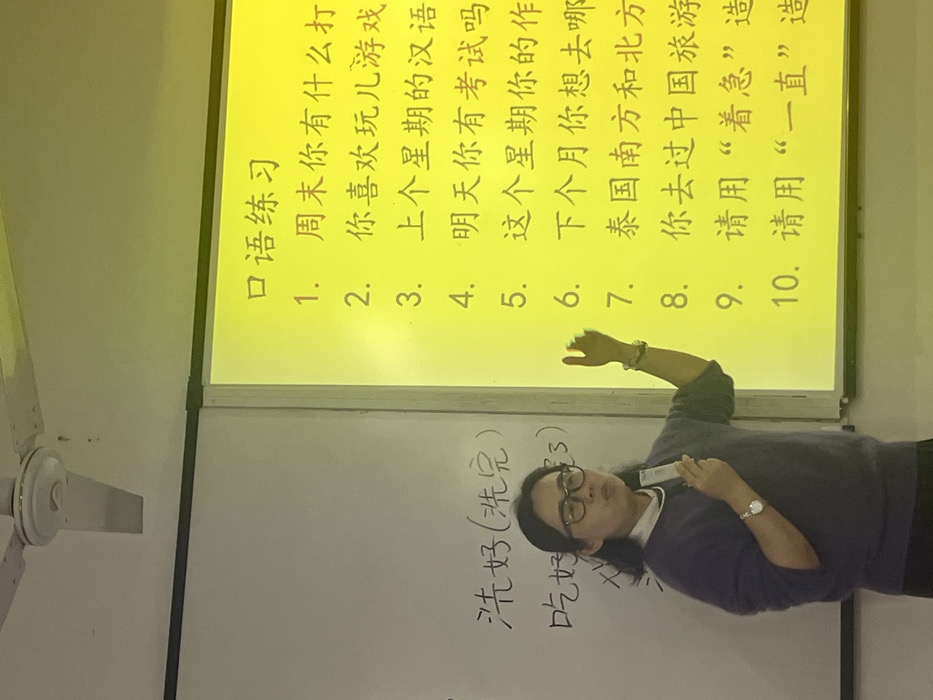 口语练习
1. 周末你有什么打
2. 你喜欢玩儿游戏
3. 上个星期的汉语
4. 明天你有考试吗
5. 这个星期你的作
6. 下个月你想去哪
7. 泰国南方和北方
8. 你去过中国旅游
9. 请用“着急”造
10. 请用“一直”造
洗好(洗完)
吃好